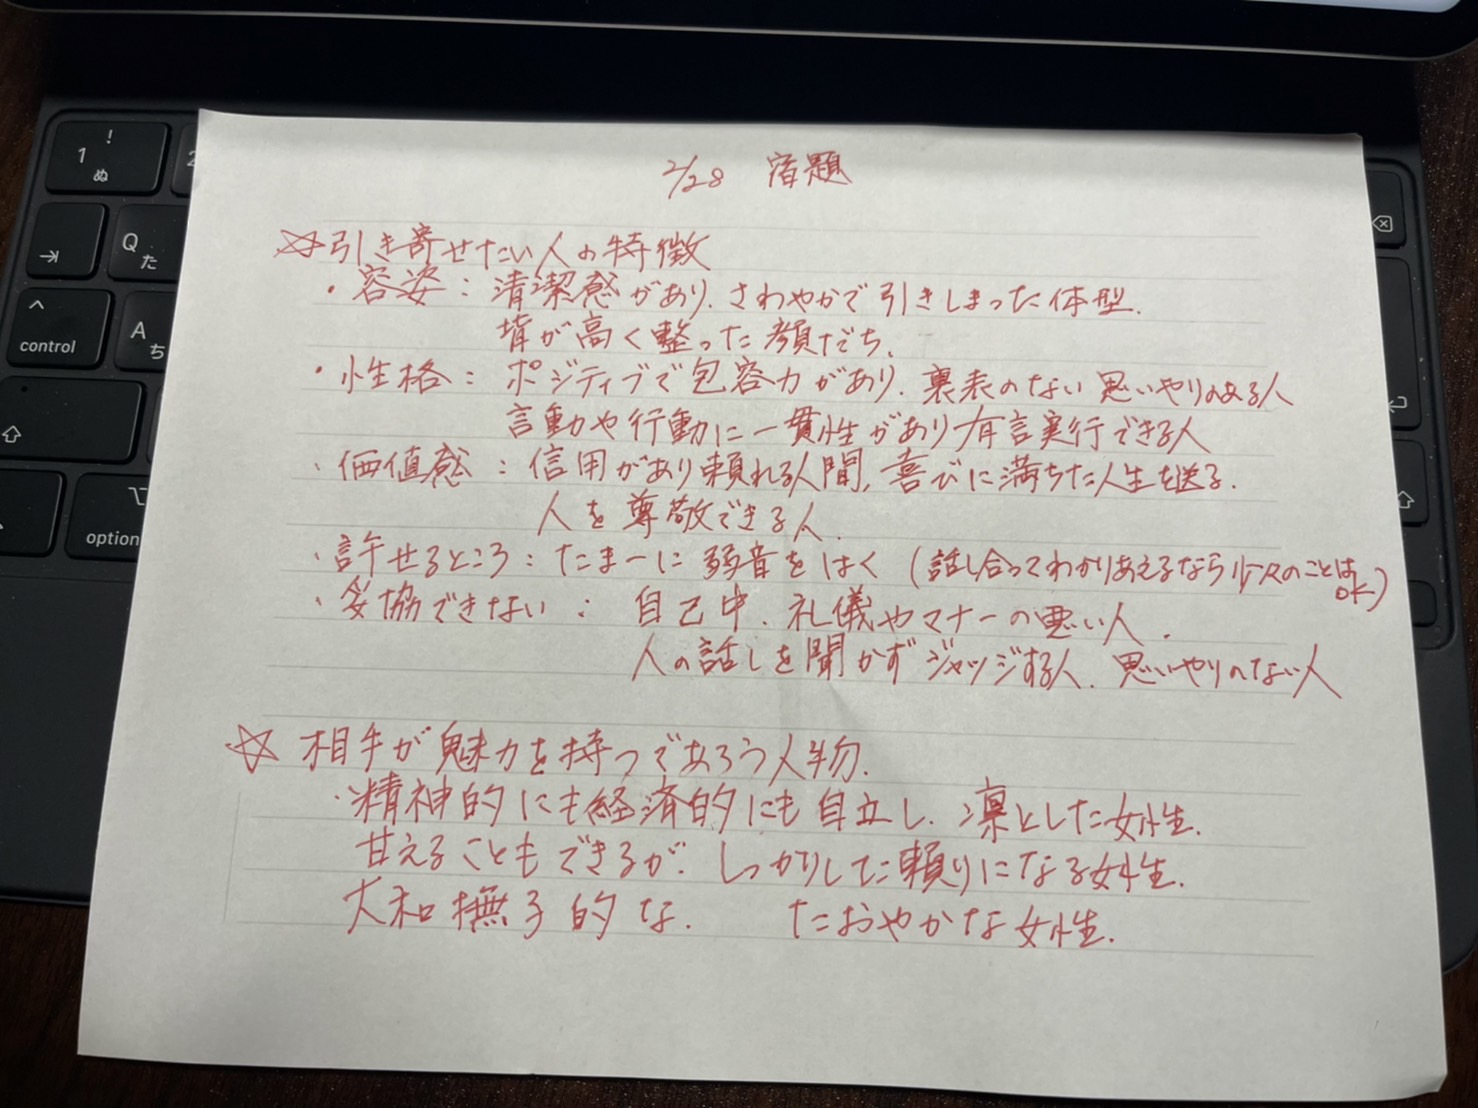 2/28 宿題
☆引き寄せたい人の特徴
・容姿：清潔感があり、さわやかで引きしまった体型、
背が高く整った顔だち、
・性格：ポジティブで包容力があり、裏表のない思いやりのある人
言動や行動に一貫性があり有言実行できる人
・価値感：信用があり頼れる人間、喜びに満ちた人生を送る、
人を尊敬できる人、
・許せるところ：たまーに弱音をはく（話し合ってわかりあえるなら少々のことはOK）
・妥協できない：自己中、礼儀やマナーの悪い人、
人の話しを聞かずジャッジする人、思いやりのない人
☆相手が魅力を持つであろう人物、
・精神的にも経済的にも自立し、凛とした女性、
甘えることもできるが、しっかりした頼りになる女性、
大和撫子的な、たおやかな女性、
! 1 ぬ
2
Q た
^ control
A ち
option